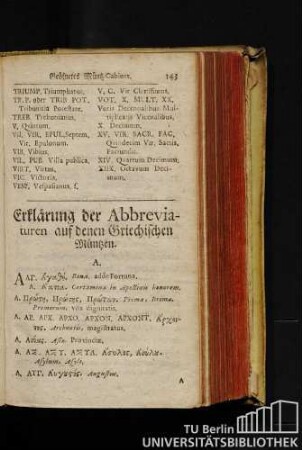 Geöfnetes Müntz-Cabinet. 143
TRIUMP. Triumphator.
TR. P. oder TRIB POT.
Tribunitia Poteſtate.
TREB. Trebonianus.
V, Quintum.
VII. VIR. EPUL. Septem
Vir, Epulonum.
VIB. Vibius.
VIL. PUB Villa publica.
VIRT, Virtus,
VIC. Victoria,
VESP. Veſpaſianus, ſ.
V, C. Vir Clariſſimus,
VOT. X, MULT, XX,
Votis Decennalibus Mul-
tiplicatis Vicennalibus,
X. Decimum,
XV. VIR. SACR. FAC,
Quindecim Vir, Sacris,
Faciundis.
XIV. Quartum Decimum,
XIIX. Octavum Deci-
mum,
Erklärung der Abbrevia-
turen auf denen Griechiſchen
Müntzen.
A.
bona. addo Fortuna.
A. Certamina in Apollinis honorem.
A. Prima.
Primorum, vox dignitatis.
A. AP. APX. APXO. APXON. APXONT.
Archontis, magiſtratus.
A. Aſia, Provincia,
A. AΣ. AΣΥ. AΣΥΛ.
Aſylum. Aſyli,
A. ΑΥΓ. Auguſtus.
A
TU Berlin
UNIVERSITÄTSBIBLIOTHEK